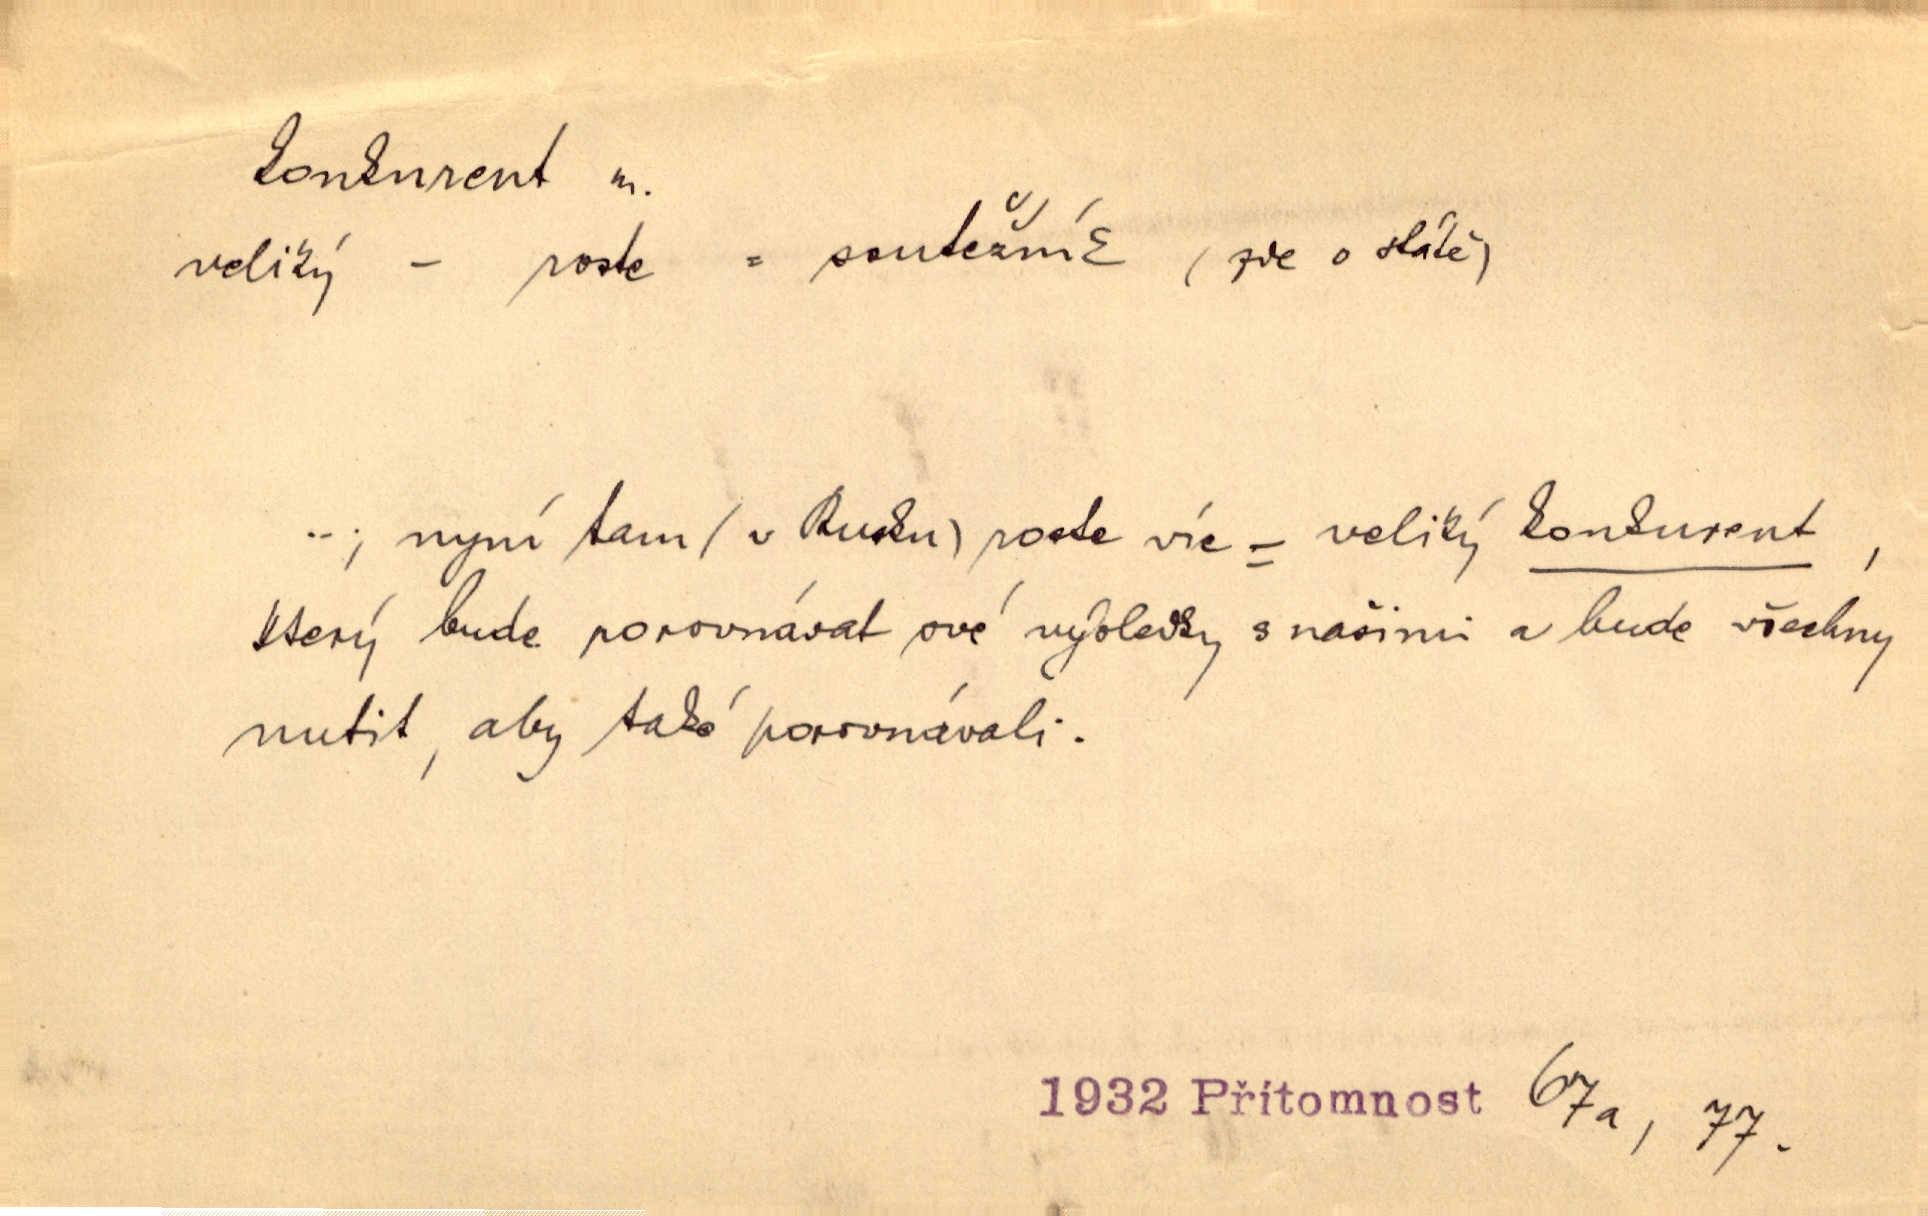 konkurent m.
veliký – roste = soutěžník (zde o státě)
..; nyní tam (v Rusku) roste víc = veliký konkurent,
který bude porovnávat své výsledky s našimi a bude všechny
nutit, aby také porovnávali.
1932 Přítomnost 67a, 77.